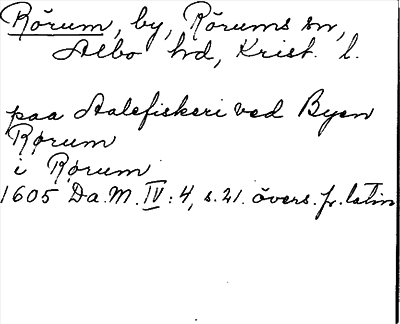 Rörum, by, Rörums sn,
Albo hd, Krist. l.
paa Aalefiskeri ved Byen
Rørum
i Rørum
1605 Da.M. IV: 4, s. 21. övers. fr. latin